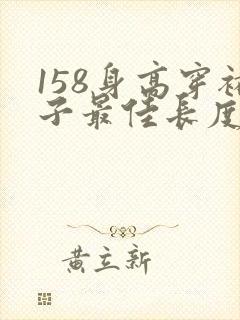 158身高穿裙
子最佳长度
黄立新